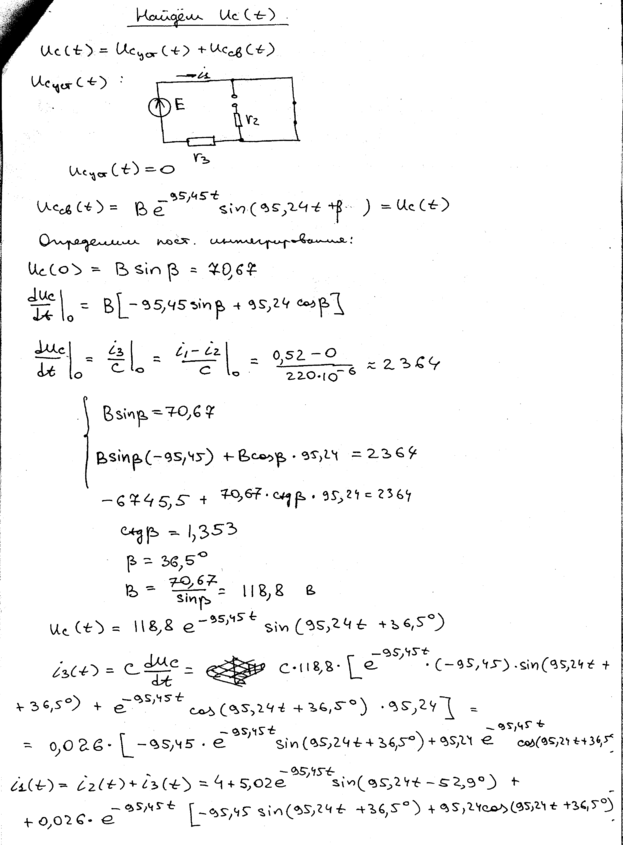 Найдём Uc(t)
Uc(t) = Ucуст(t) + Uссв(t)
Ucуст(t) :
i₁
E
r₂
r₃
Ucуст(t) = 0
Uссв(t) = B e^-95,45t sin(95,24t + β ) = Uc(t)
Определим пост. интегрирование:
Uc(0) = B sin β = 70,67
dUc/dt|₀ = B[-95,45 sinβ + 95,24 cosβ]
dUc/dt|₀ = i₃/C|₀ = i₁-i₂/C|₀ = 0,52-0/220·10⁻⁶ ≈ 2364
B sinβ = 70,67
B sinβ(-95,45) + B cosβ · 95,24 = 2364
-6745,5 + 70,67 · ctgβ · 95,24 = 2364
ctgβ = 1,353
β = 36,5°
B = 70,67/sinβ = 118,8 В
Uc(t) = 118,8 e^-95,45t sin(95,24t + 36,5°)
i₃(t) = C dUc/dt = C·118,8·[e^-95,45t·(-95,45)·sin(95,24t +
+ 36,5°) + e^-95,45t cos(95,24t + 36,5°) · 95,24] =
= 0,026 · [-95,45 · e^-95,45t sin(95,24t + 36,5°) + 95,24 e^-95,45t cos(95,24t + 36,5°
i₁(t) = i₂(t) + i₃(t) = 4 + 5,02e^-95,45t sin(95,24t - 52,9°) +
+ 0,026 · e^-95,45t [-95,45 sin(95,24t + 36,5°) + 95,24cos(95,24t + 36,5°)]